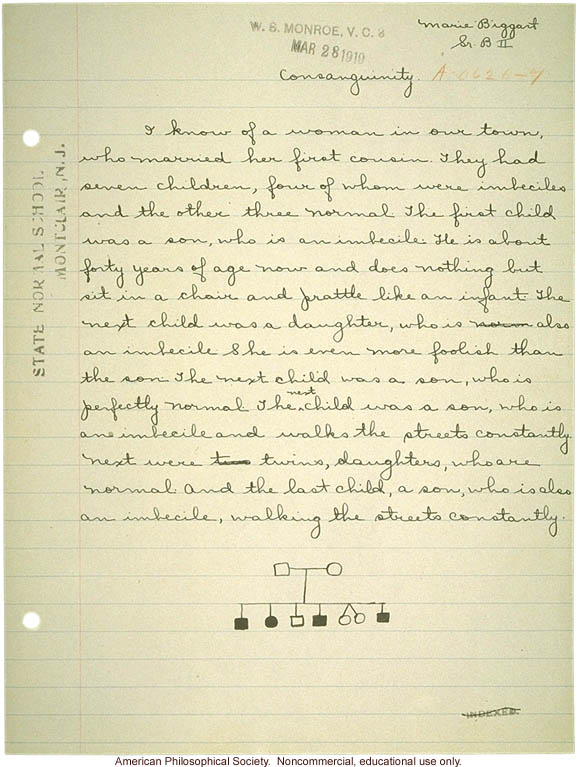 Marie Biggart
Sr. B II
W. S. MONROE, V. C. S
MAR 28 1910
Consanguinity. A:0626-7
STATE NORMAL SCHOOL
MONTCLAIR, N. J.
I know of a woman in our town,
who married her first cousin. They had
seven children, four of whom were imbeciles
and the other three normal. The first child
was a son, who is an imbecile. He is about
forty years of age now and does nothing but
sit in a chair and prattle like an infant. The
next child was a daughter, who is also
an imbecile She is even more foolish than
the son. The next child was a son, who is
perfectly normal The next child was a son, who is
an imbecile and walks the streets constantly.
Next were twins, daughters, who are
normal. And the last child, a son, who is also
an imbecile, walking the streets constantly.
INDEXED.
American Philosophical Society. Noncommercial, educational use only.